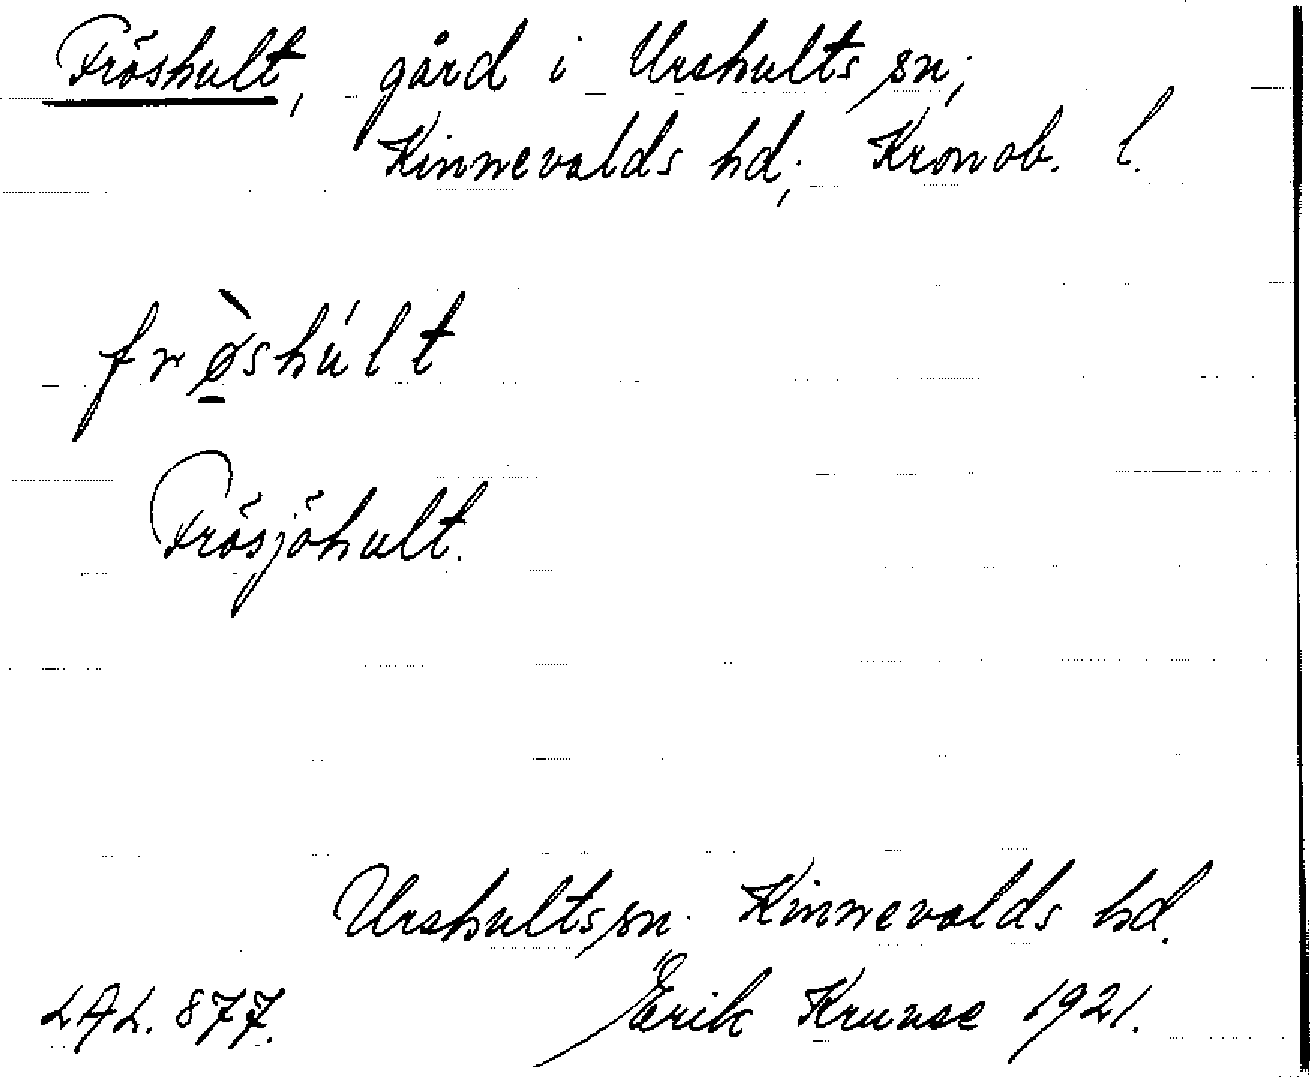 Fröshult, gård i Urshults sn;
Kinnevalds hd; Kronob. l.
frø̀shúlt
Frösjöhult.
Urshults sn. Kinnevalds hd.
LAL. 877. Erik Kruuse 1921.